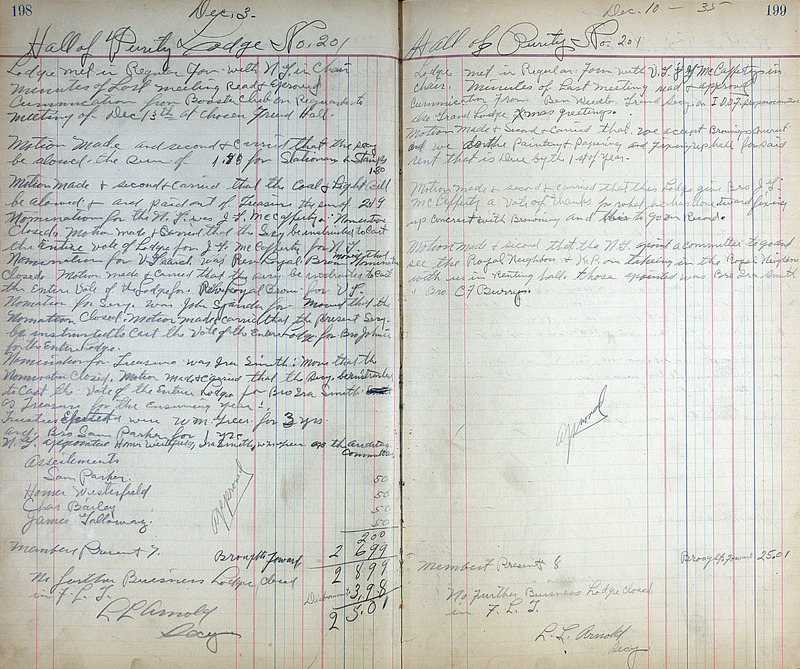 198
Dec. 3.
Hall of Purity Lodge No. 201
Lodge met in Regular Form with N.G. in Chair
Minutes of Last meeting Read & approved
Communication from Booster Club in Regards to
Meeting of Dec 13th at Chosen Friend Hall.
Motion Made and second & carried that the secy
be alowed the sum of 1.50 for Stationary & Stamps
1.50
Motion Made & second & carried that the Coal & Light Bill
be alowed & and paid out of Treasure the sum of 2.49
Nomination for the N.G. was J.F. McCafferty. Nomination
Closed. Motion made & Carried that the Secy be instructed to Cast
the Entire Vote of Lodge for J.F. McCafferty for N.G.
Nomination for V.G. was Royal Brown moved that Nomination
Closed. Motion made & carried that the secy be instructed to Cast
the Entire Vote of the Lodge for Royal Brown for V.G.
Nomation for Secy. was John moved that the
Nomation Closed. Motion made & carried that the present Secy.
be instructed to Cast the Vote of the Entire Lodge for Bro John
for the Entire Lodge.
Nomination for Treasure was Ira Smith. Move that the
Nomination Closed. Motion Made & Carried that the Secy. be instructed
to Cast the Vote of the Entire Lodge for Bro Ira Smith
as Treasure for the Ensuing year.
Trustees Elected were W.M. Greer for 3 yrs.
and Bro Sam Parker for 1 yrs.
N.G. appointed Homer Westerfield, Ira Smith, W.M. Greer as the auditing
Committee
Assessments
Sam Parker. 50
Homer Westerfield 50
Chas Barley 50
James Galloway. 50
approved
2.00
Members Present 7. Brought Foward 26.99
28.99
Disbursments 3.98
25.01
No further Business Lodge closed
in F.L.T.
L.L. Arnold
Secy
199
Dec. 10 - 35
Hall of Purity No. 201
Lodge met in Regular Form with V.G. J.F. McCafferty in
chair. Minutes of Last meeting read & approved
Communication From Grand Secy on I.O.O.F.
also Grand Lodge Xmas greetings.
Motion Made & Second & Carried that we accept Brownings Concreet
and we do the Painting & Papering and Fixing up hall for said
rent that is Due by the 1st of year.
Motion made & second & carried that this Lodge give Bro J.F.
McCafferty a Vote of Thanks for what he has done toward fixing
up Concreet with Browning and this to go on Record.
Motion made & second that the N.G. apoint a committee to go and
see the Royal Neighbors & K.P. on taking in the Royal Neighbors
with us in Renting hall. those apointed was Bro Ira Smith
& Bro C.F. Burrys.
approved
Members Present 8 Brought Foward 25.01
No Further Business Lodge closed
in F.L.T.
L.L. Arnold
Secy